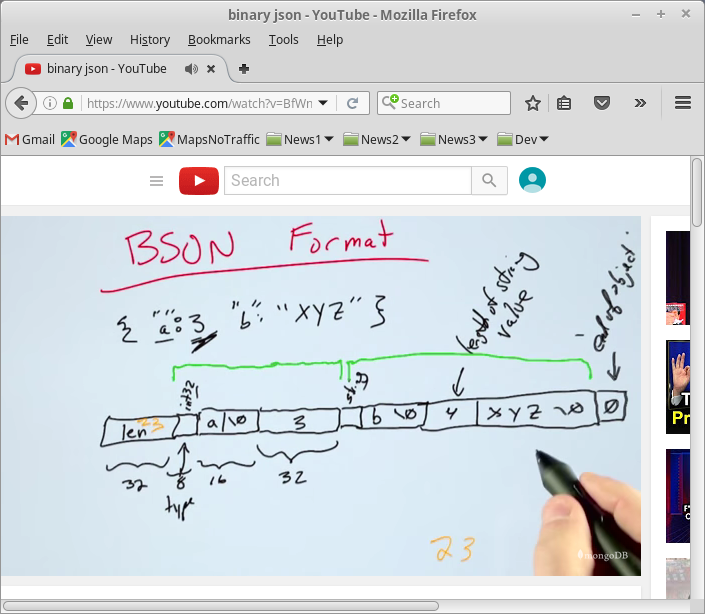 binary json - YouTube - Mozilla Firefox
File Edit View History Bookmarks Tools Help
binary json - YouTube
https://www.youtube.com/watch?v=BfWn
Search
Gmail Google Maps MapsNoTraffic News1 News2 News3 Dev
Search
BSON Format
{ "a": 3 "b": "XYZ" }
length of string
value
end of object
int32
string
len 23
a \0
3
b \0
4
X Y Z \0
0
32
8
16
32
type
23
mongoDB
T
Pr